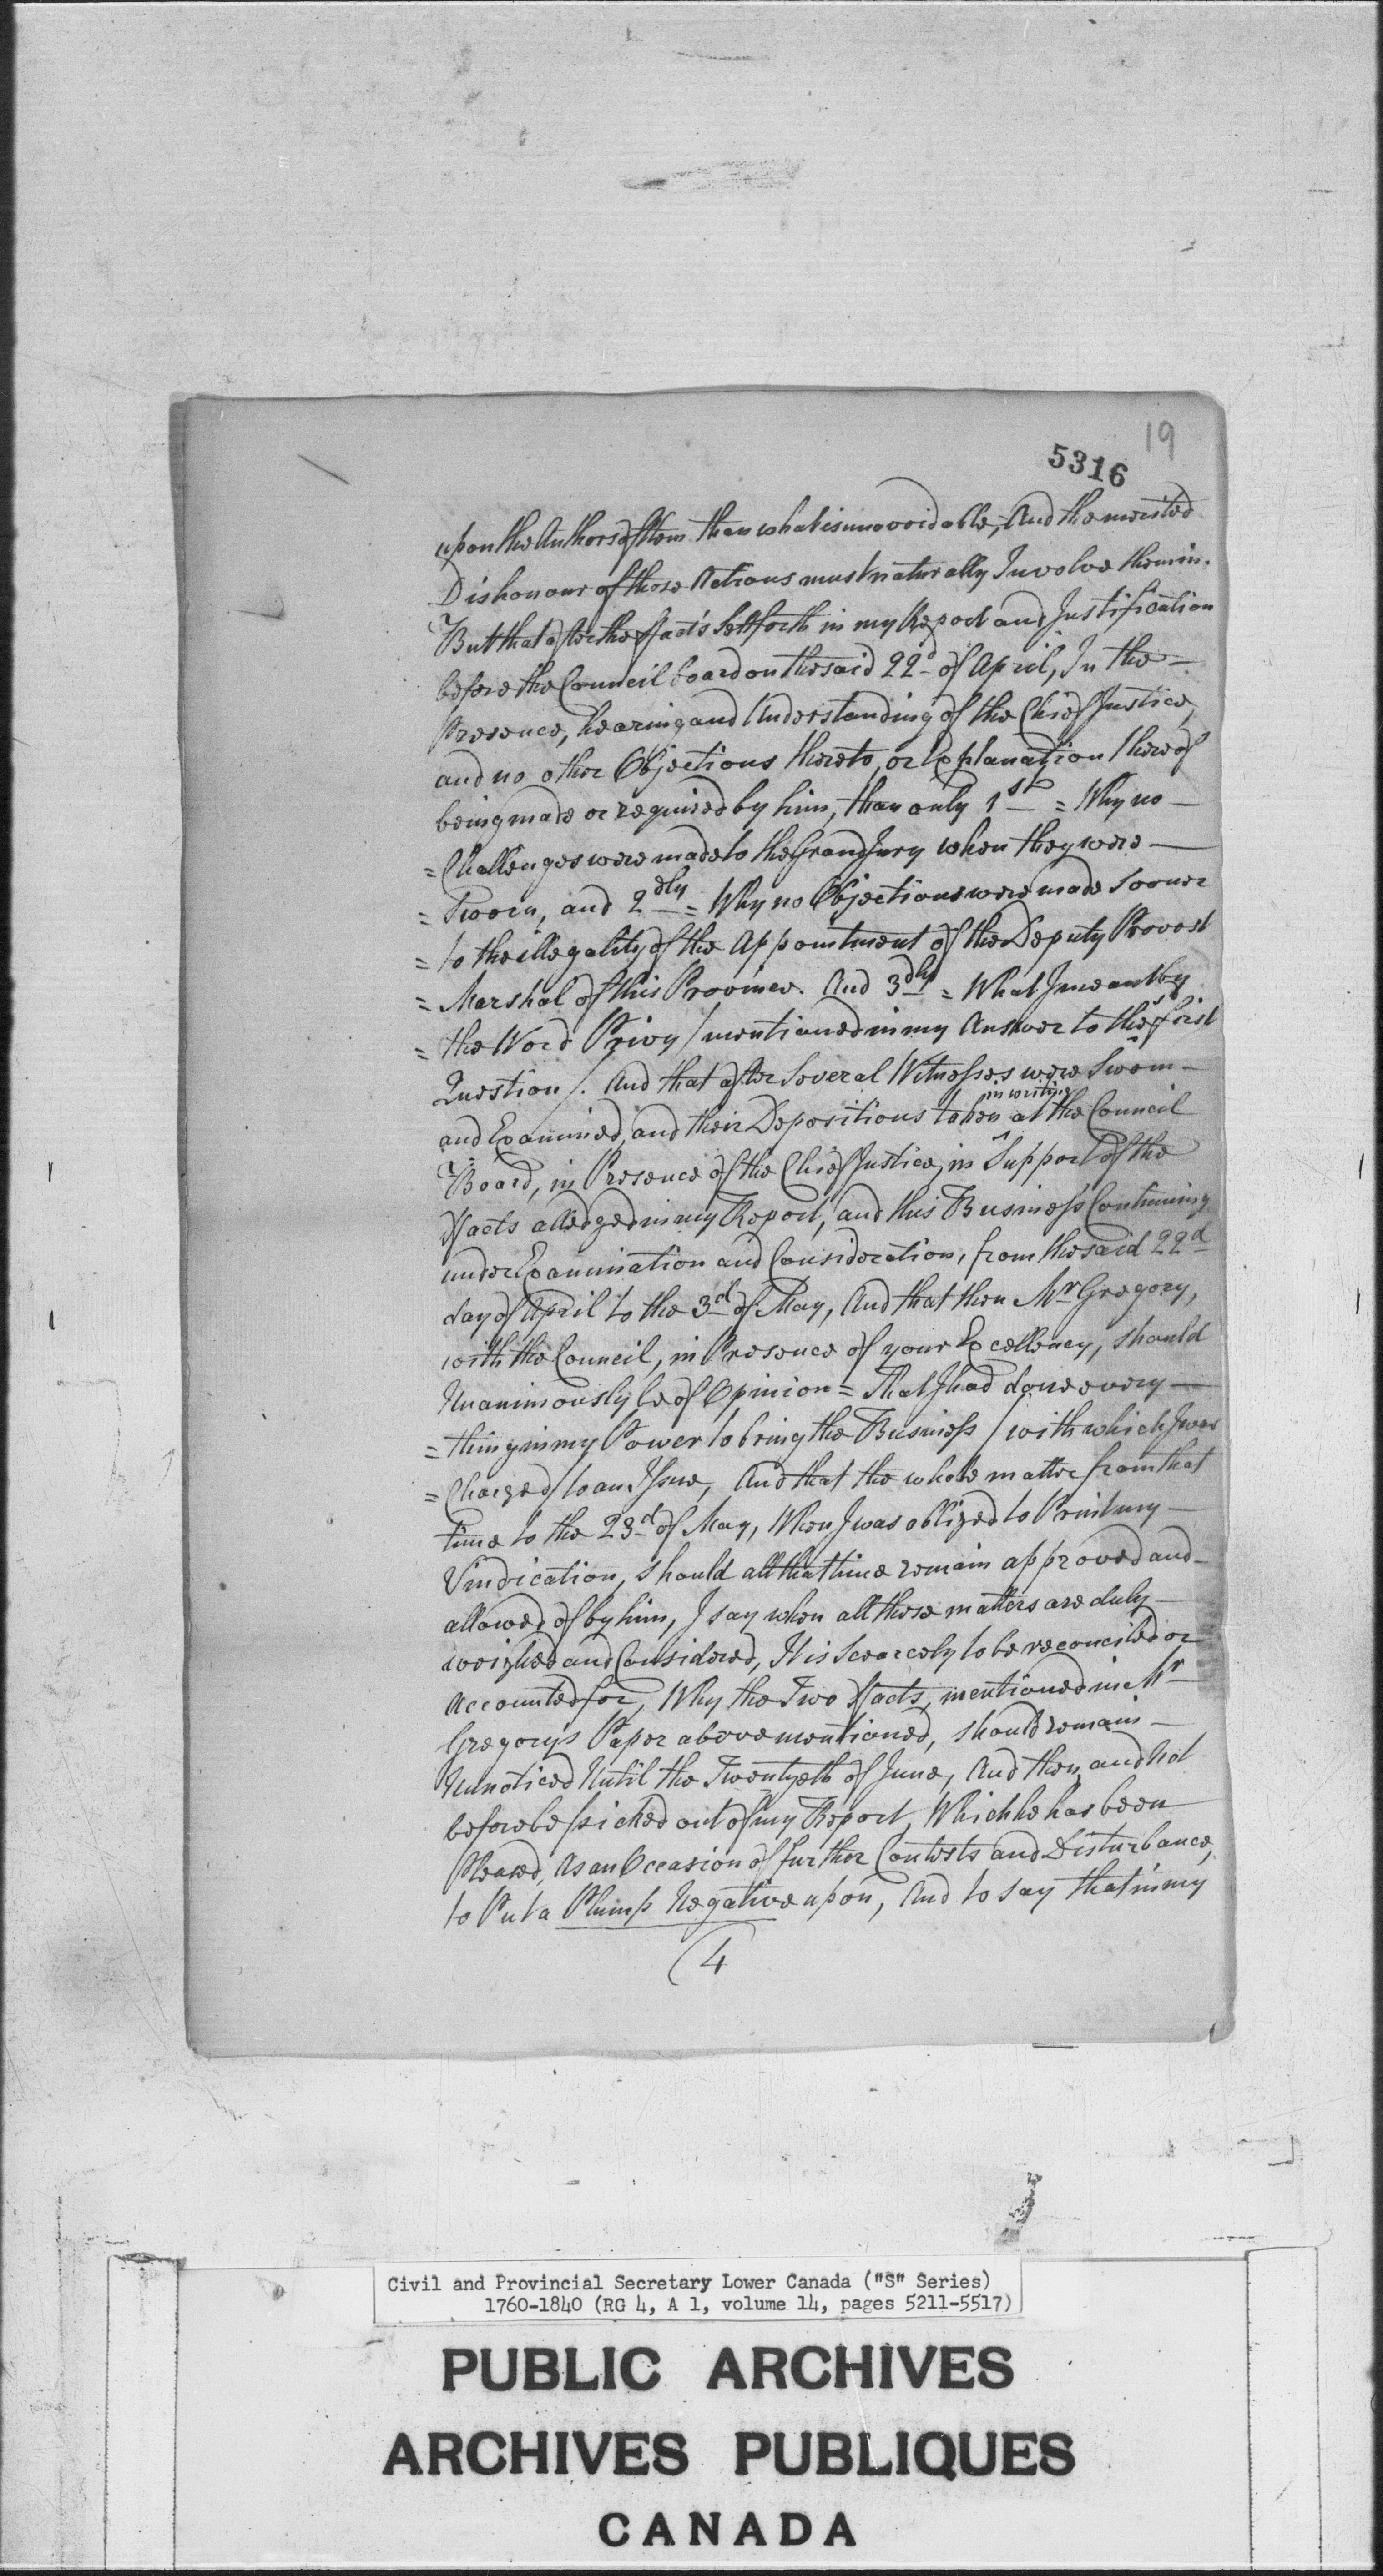 19
5316
upon the Authors of them than what is unavoidable, And the merited
Dishonour of those Actions must naturally Involve them in.
But that after the ffacts Settforth in my Report and Justification
before the Council board on the said 22d of April, In the —
Presence, hearing and Understanding of the Chief Justice,
and no other Objections thereto, or Explanation thereof
being made or required by him, than only 1st = Why no —
= Challenges were made to the Grand Jury when they were —
= Sworn, and 2dly = Why no Objections were made sooner
= to the illegality of the Appointment of the Deputy Provost
= Marshal of this Province. And 3dly = What I meant by
= the Word Privy / mentioned in my Answer to the first
Question /. And that after Several Witnesses were Sworn —
and Examined, and their Depositions taken in writing at the Council
Board, in Presence of the Chief Justice, in Support of the
ffacts alledged in my Report, and this Business Continuing
under Examination and Consideration, from the said 22d
day of April to the 3d of May, And that then Mr Gregory,
with the Council, in Presence of your Excellency, should
Unanimously be of Opinion = That I had done every —
= thing in my Power to bring the Business / with which I was
= Charged / to an Issue, And that the whole matter from that
time to the 23d of May, When I was obliged to Print my —
Vindication, should all that time remain approved and —
allowed of by him, I say when all these matters are duly —
weighed and Considered, It is Scearcely to be reconciled or
Accounted for, Why the Two ffacts, mentioned in Mr
Gregory's Paper above mentioned, should remain —
Unnoticed Until the Twentyeth of June, And then, and Not
before be picked out of my Report, Which he has been
Pleased, As an Occasion of further Contests and Disturbance,
to Put a Plump Negative upon, And to say that in my
(4
Civil and Provincial Secretary Lower Canada ("S" Series)
1760-1840 (RG 4, A 1, volume 14, pages 5211-5517)
PUBLIC ARCHIVES
ARCHIVES PUBLIQUES
CANADA